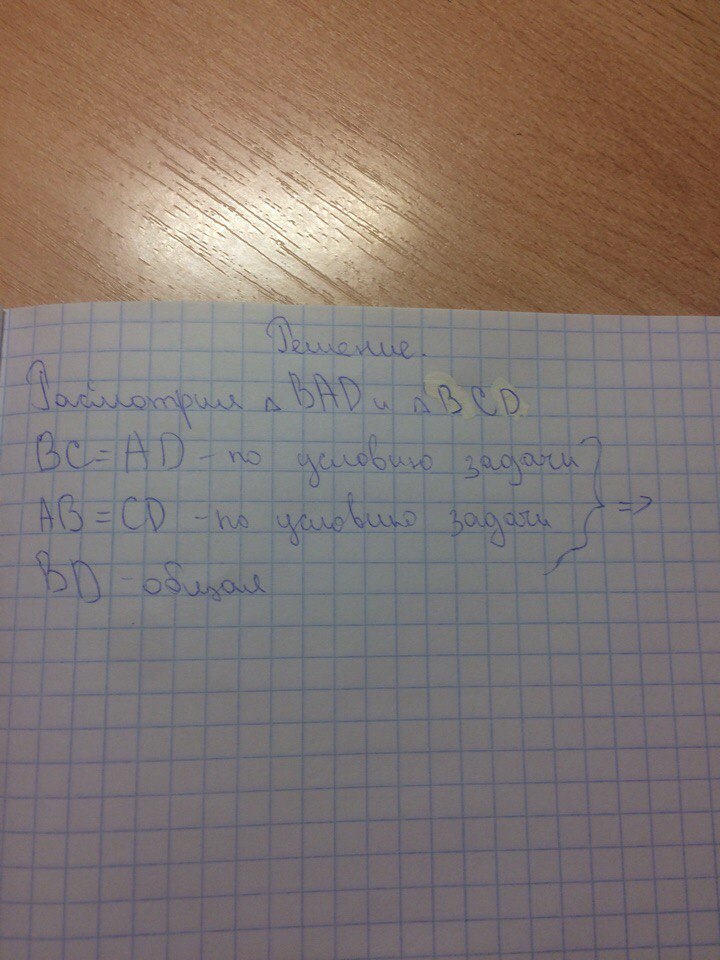 Решение.
Расмотрим △ BAD и △ BCD
BC = AD - по условию задачи
AB = CD - по условию задачи } =>
BD - общая